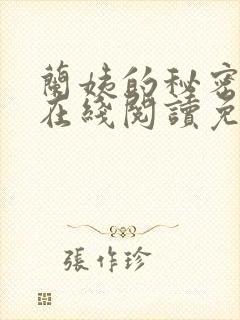 蘭姨的秘密
在綫閱讀免
張作珍